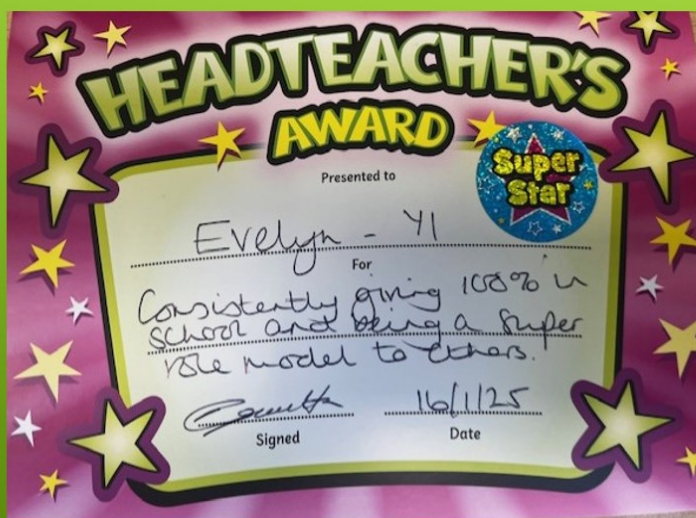 HEADTEACHER'S
AWARD
Super
Star
Presented to
Evelyn - Y1
For
Consistently giving 100% in
school and being a super
role model to others.
16/1/25
Signed
Date